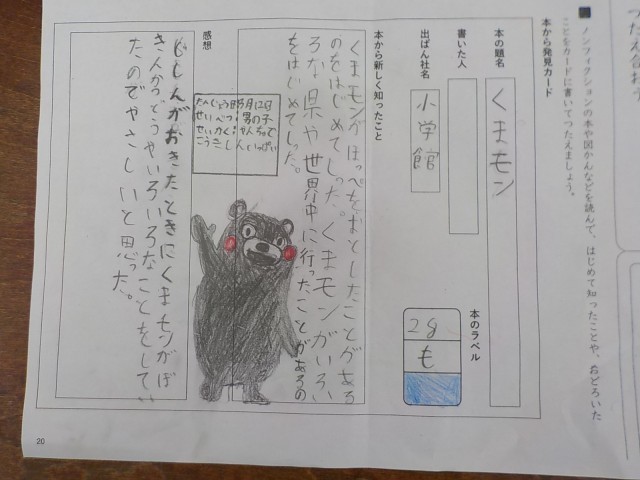 ノンフィクションの本や図かんなどを読んで、はじめて知ったことや、おどろいた
ことをカードに書いてつたえましょう。
本から発見カード
本の題名
くまモン
書いた人
出ぱん社名
小学館
本のラベル
28
も
本から新しく知ったこと
くまモンがほっぺをおとしたことがある
のをはじめてしった。くまモンがいろい
ろな県や世界中に行ったことがあるの
をはじめてしった。
感想
じしんがおきたときにくまモンがぼ
きんかつどうやいろいろなことをしてい
たのでやさしいと思った。
20